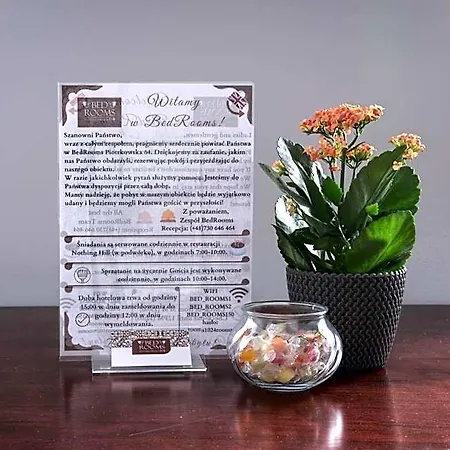 BED
ROOMS
Witamy
w BedRooms!
Szanowni Państwo,
wraz z całym zespołem, pragniemy serdecznie powitać Państwa
w BedRooms Piotrkowska 64. Dziękujemy za zaufanie, jakim
nas Państwo obdarzyli, rezerwując pokój i przyjeżdżając do
naszego obiektu.
W razie jakichkolwiek pytań służymy pomocą. Jesteśmy do
Państwa dyspozycji przez całą dobę.
Mamy nadzieję, że pobyt w naszym obiekcie będzie wyjątkowo
udany i będziemy mogli Państwa gościć w przyszłości.
Z poważaniem,
Zespół BedRooms
Recepcja: (+48)730 646 464
Śniadania są serwowane codziennie w restauracji
Nothing Hill (w podwórku), w godzinach 7:00-10:00.
Sprzątanie na życzenie Gościa jest wykonywane
codziennie, w godzinach 10:00-14:00.
Doba hotelowa trwa od godziny
15:00 w dniu zameldowania do
godziny 12:00 w dniu
wymeldowania.
WIFI
BED_ROOMS1
BED_ROOMS2
BED_ROOMS150
hasło:
BED
ROOMS